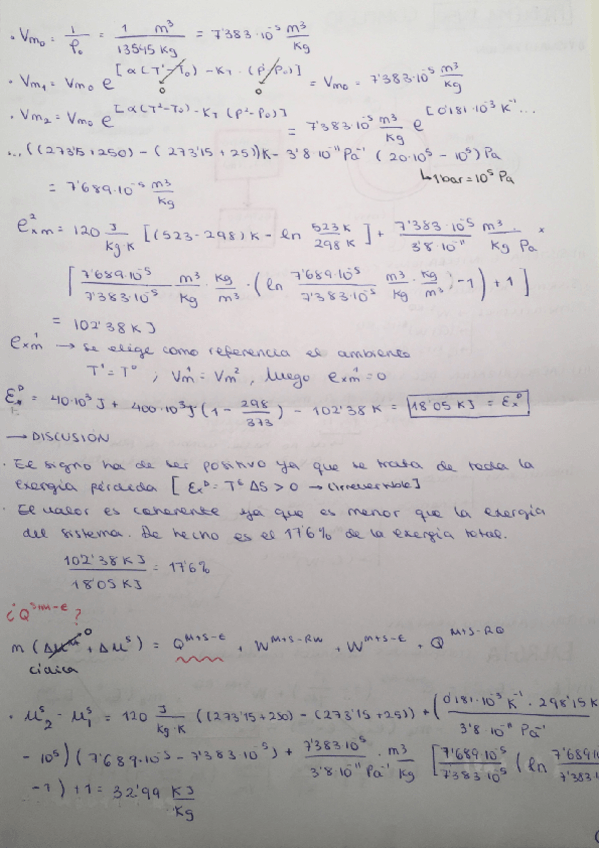 · Vm₀ = 1/ρ₀ = 1/13595 m³/Kg = 7'383·10⁻⁵ m³/Kg
· Vm₁ = Vm₀ e^[α(T¹-T₀) - K_T·(P¹-P₀)] = Vm₀ = 7'383·10⁻⁵ m³/Kg
0 0
· Vm₂ = Vm₀ e^[α(T²-T₀) - K_T (P²-P₀)] = 7'383·10⁻⁵ m³/Kg e^[0'181·10⁻³ K⁻¹ ...
... ((273'15+250) - (273'15+25))K - 3'8·10⁻¹¹ Pa⁻¹ (20·10⁵ - 10⁵) Pa
↳ 1bar = 10⁵ Pa
= 7'689·10⁻⁵ m³/Kg
e²ₓm = 120 J/Kg·K [(523-298)K - ln 523K/298K] + 7'383·10⁻⁵/3'8·10⁻¹¹ m³/Kg Pa ×
[7'689·10⁻⁵/7'383·10⁻⁵ m³/Kg · Kg/m³ · (ln 7'689·10⁻⁵/7'383·10⁻⁵ m³/Kg · Kg/m³ - 1) + 1]
= 102'38 KJ
e¹ₓm → se elige como referencia el ambiente
T¹ = T⁰ ; Vm¹ = Vm², luego e¹ₓm = 0
Eₓᴰ = 40·10³ J + 400·10³ J (1 - 298/373) - 102'38 K = 18'05 KJ = Eₓᴰ
→ DISCUSIÓN
· El signo ha de ser positivo ya que se trata de toda la
exergía pérdida [Eₓᴰ = T⁰ ΔS > 0 → (irreversible)]
· El valor es coherente ya que es menor que la exergía
del sistema. De hecho es el 17'6% de la exergía total.
102'38 KJ/18'05 KJ = 17'6%
¿Q ?
m (Δu^M + Δu^S) = Q^M+S-E + W^M+S-RW + W^M+S-E + Q^M+S-RQ
0
cíclica
· u₂ˢ - u₁ˢ = 120 J/Kg·K ((273'15+250) - (273'15+25)) + (0'181·10⁻³ K⁻¹ · 298'15 K/3'8·10⁻¹¹ Pa⁻¹
- 10⁵) (7'689·10⁻⁵ - 7'383·10⁻⁵) + 7'383·10⁻⁵/3'8·10⁻¹¹ Pa⁻¹ · m³/Kg [7'689·10⁻⁵/7'383·10⁻⁵ (ln 7'689·10/7'383·1
- 1) + 1 = 32'99 KJ/Kg